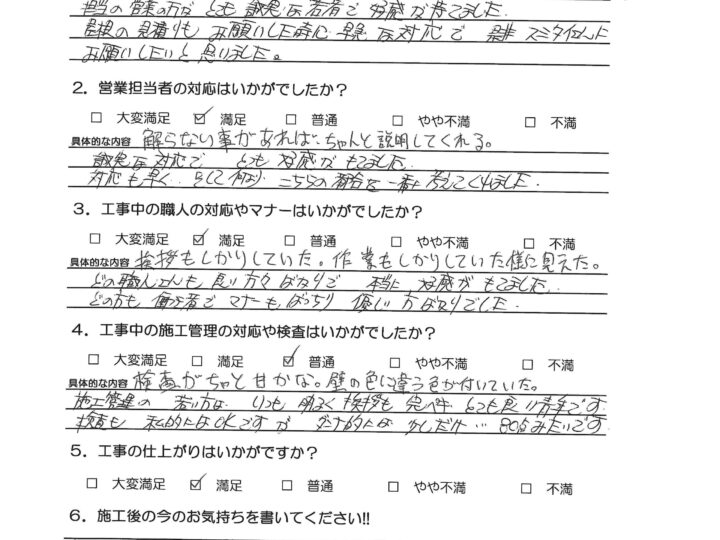 担当の営業の方が とても 誠実な若者で 好感が持てました.
屋根の見積りも お願いした時に 早急な対応で 是非 スミタイさんに
お願いしたいと 思いました。
2．営業担当者の対応はいかがでしたか？
□ 大変満足 ☑ 満足 □ 普通 □ やや不満 □ 不満
具体的な内容 解らない事があれば、ちゃんと説明してくれる。
誠実な対応で とても 好感が もてました.
対応も早く そして何より こちらの都合を 一番に考えてくれました.
3．工事中の職人の対応やマナーはいかがでしたか？
□ 大変満足 ☑ 満足 □ 普通 □ やや不満 □ 不満
具体的な内容 挨拶もしかりしていた。作業もしかりしていた様に見えた。
どの職人さんも 良い方々ばかりで 本当に 好感が もてました.
どの方も 働き者で マナーも ばっちり 優しい 方ばかりでした.
4．工事中の施工管理の対応や検査はいかがでしたか？
□ 大変満足 □ 満足 ☑ 普通 □ やや不満 □ 不満
具体的な内容 検査がちょと甘かな。壁の色に違う色が付いていた。
施工管理の 若い方は いつも 明るく 挨拶も 完ペキ とても良い青年です.
検査も 私的にはOKですが 少しだけ… 80点みたいです.
5．工事の仕上がりはいかがですか？
□ 大変満足 ☑ 満足 □ 普通 □ やや不満 □ 不満
6．施工後の今のお気持ちを書いてください!!